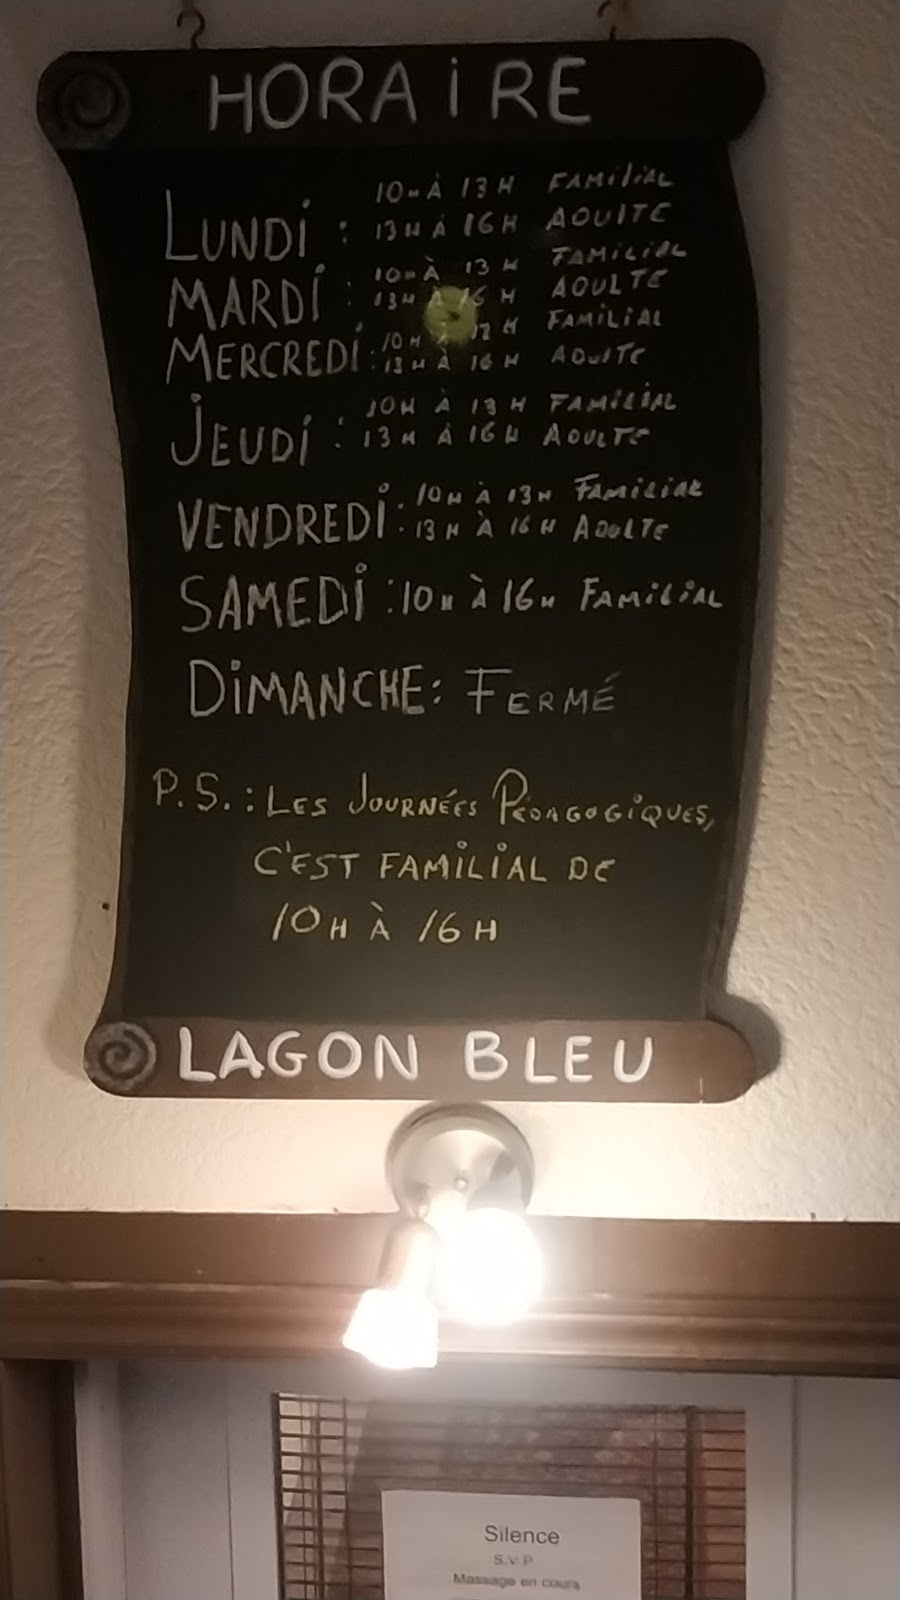 HORAIRE
10H À 13H FAMILIAL
LUNDI : 13H À 16H ADULTE
10H À 13H FAMILIAL
MARDI : 13H À 16H ADULTE
10H À 13H FAMILIAL
MERCREDI : 13H À 16H ADULTE
10H À 13H FAMILIAL
JEUDI : 13H À 16H ADULTE
10H À 13H FAMILIAL
VENDREDI : 13H À 16H ADULTE
SAMEDI : 10H À 16H FAMILIAL
DIMANCHE : FERMÉ
P.S. : LES JOURNÉES PÉDAGOGIQUES,
C'EST FAMILIAL DE
10H À 16H
LAGON BLEU
Silence
S.V.P.
Massage en cours